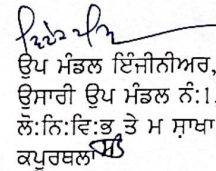 ਉਪ ਮੰਡਲ ਇੰਜੀਨੀਅਰ,
ਉਸਾਰੀ ਉਪ ਮੰਡਲ ਨੰ:1,
ਲੋ:ਨਿ:ਵਿ:ਭ ਤੇ ਮ ਸ਼ਾਖਾ
ਕਪੂਰਥਲਾ